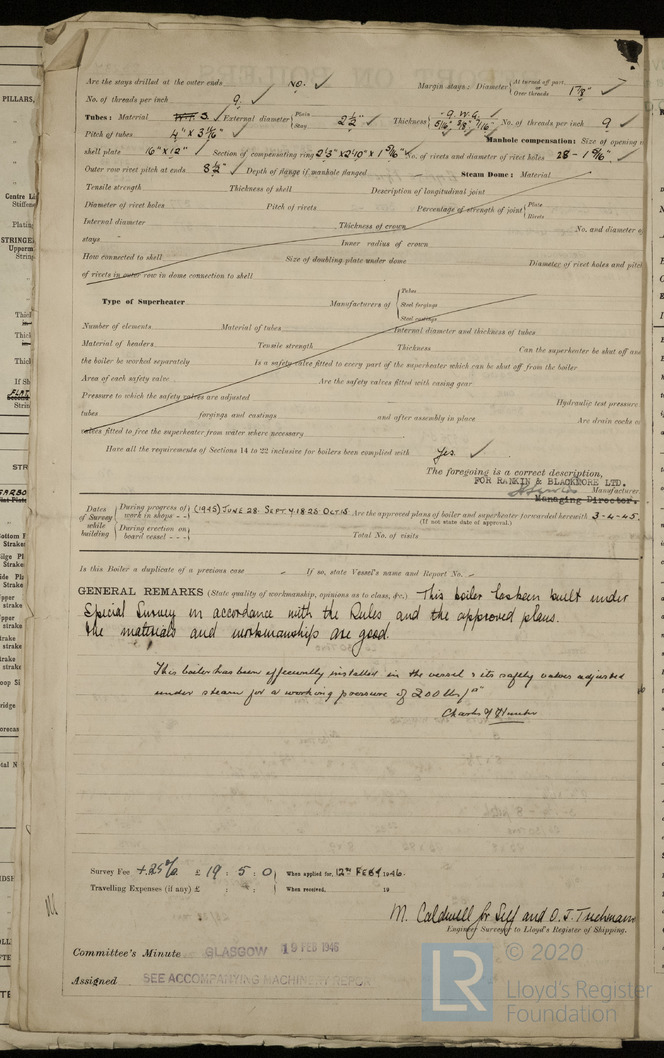 Are the stays drilled at the outer ends No. ✓ Margin stays: Diameter { At turned off part, or Over threads 1 7/8" ✓
No. of threads per inch 9 ✓
Tubes: Material S. ✓ External diameter { Plain Stay 2 1/2" ✓ Thickness { 9. W.G. 5/16" 3/8" 7/16" ✓ No. of threads per inch 9 ✓
Pitch of tubes 4" x 3 ✓ Manhole compensation: Size of opening
shell plate 16" x 12" ✓ Section of compensating ring No. of rivets and diameter of rivet holes 28 - 1 5/16" ✓
Outer row rivet pitch at ends 8 1/2" ✓ Depth of flange if manhole flanged Steam Dome: Material
Tensile strength Thickness of shell Description of longitudinal joint
Diameter of rivet holes Pitch of rivets Percentage of strength of joint { Plate Rivets
Internal diameter Thickness of crown No. and diameter
stays Inner radius of crown
How connected to shell Size of doubling plate under dome Diameter of rivet holes and pitch
of rivets in outer row in dome connection to shell
Type of Superheater Manufacturers of { Tubes Steel forgings Steel castings
Number of elements Material of tubes Internal diameter and thickness of tubes
Material of headers Tensile strength Thickness Can the superheater be shut off and
the boiler be worked separately Is a safety valve fitted to every part of the superheater which can be shut off from the boiler
Area of each safety valve Are the safety valves fitted with easing gear
Pressure to which the safety valves are adjusted Hydraulic test pressure
tubes forgings and castings and after assembly in place Are drain cocks or
valves fitted to free the superheater from water where necessary
Have all the requirements of Sections 14 to 22 inclusive for boilers been complied with Yes. ✓
The foregoing is a correct description,
FOR RANKIN & BLACKMORE LTD.
Manufacturer.
Managing Director.
Dates of Survey while building { During progress of work in shops - - (1945) JUNE 28 SEPT. 4. 18. 25 OCT. 15 Are the approved plans of boiler and superheater forwarded herewith 3-4-45.
(If not state date of approval.)
During erection on board vessel - - - Total No. of visits
Is this Boiler a duplicate of a previous case - If so, state Vessel's name and Report No. -
GENERAL REMARKS (State quality of workmanship, opinions as to class, &c.) This boiler has been built under
Special Survey in accordance with the Rules and the approved plans.
The materials and workmanships are good.
This boiler has been efficiently installed in the vessel & its safety valves adjusted
under steam for a working pressure of 200 lbs/□"
Charles
Survey Fee +25% £ 19 : 5 : 0 When applied for, 12th FEBY 1946.
Travelling Expenses (if any) £ : : When received, 19
M. Caldwell for Self and O. J.
Engineer Surveyor to Lloyd's Register of Shipping.
Committee's Minute GLASGOW 19 FEB 1946
Assigned SEE ACCOMPANYING MACHINERY REPORT
LR © 2020
Lloyd's Register
Foundation